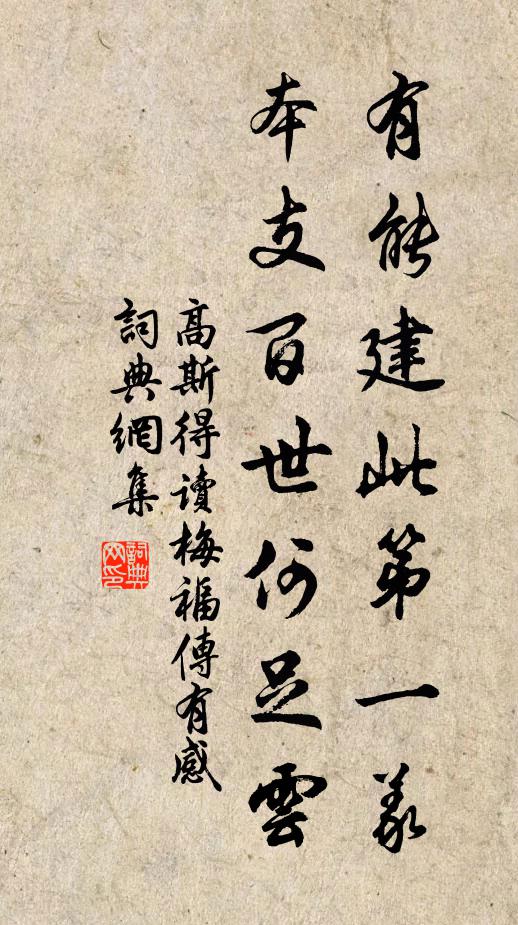 有能建此第一義
本支百世何足雲
高斯得讀梅福傳有感
詞典網集
詞典网印